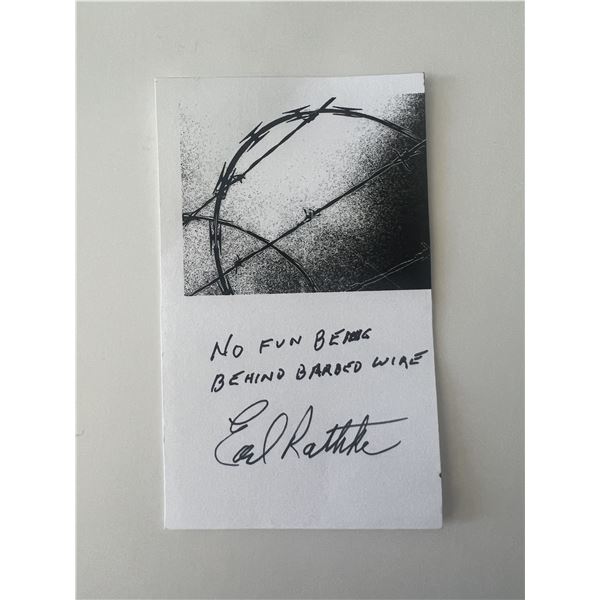 NO FUN BEING
BEHIND BARBED WIRE
Earl Rathke